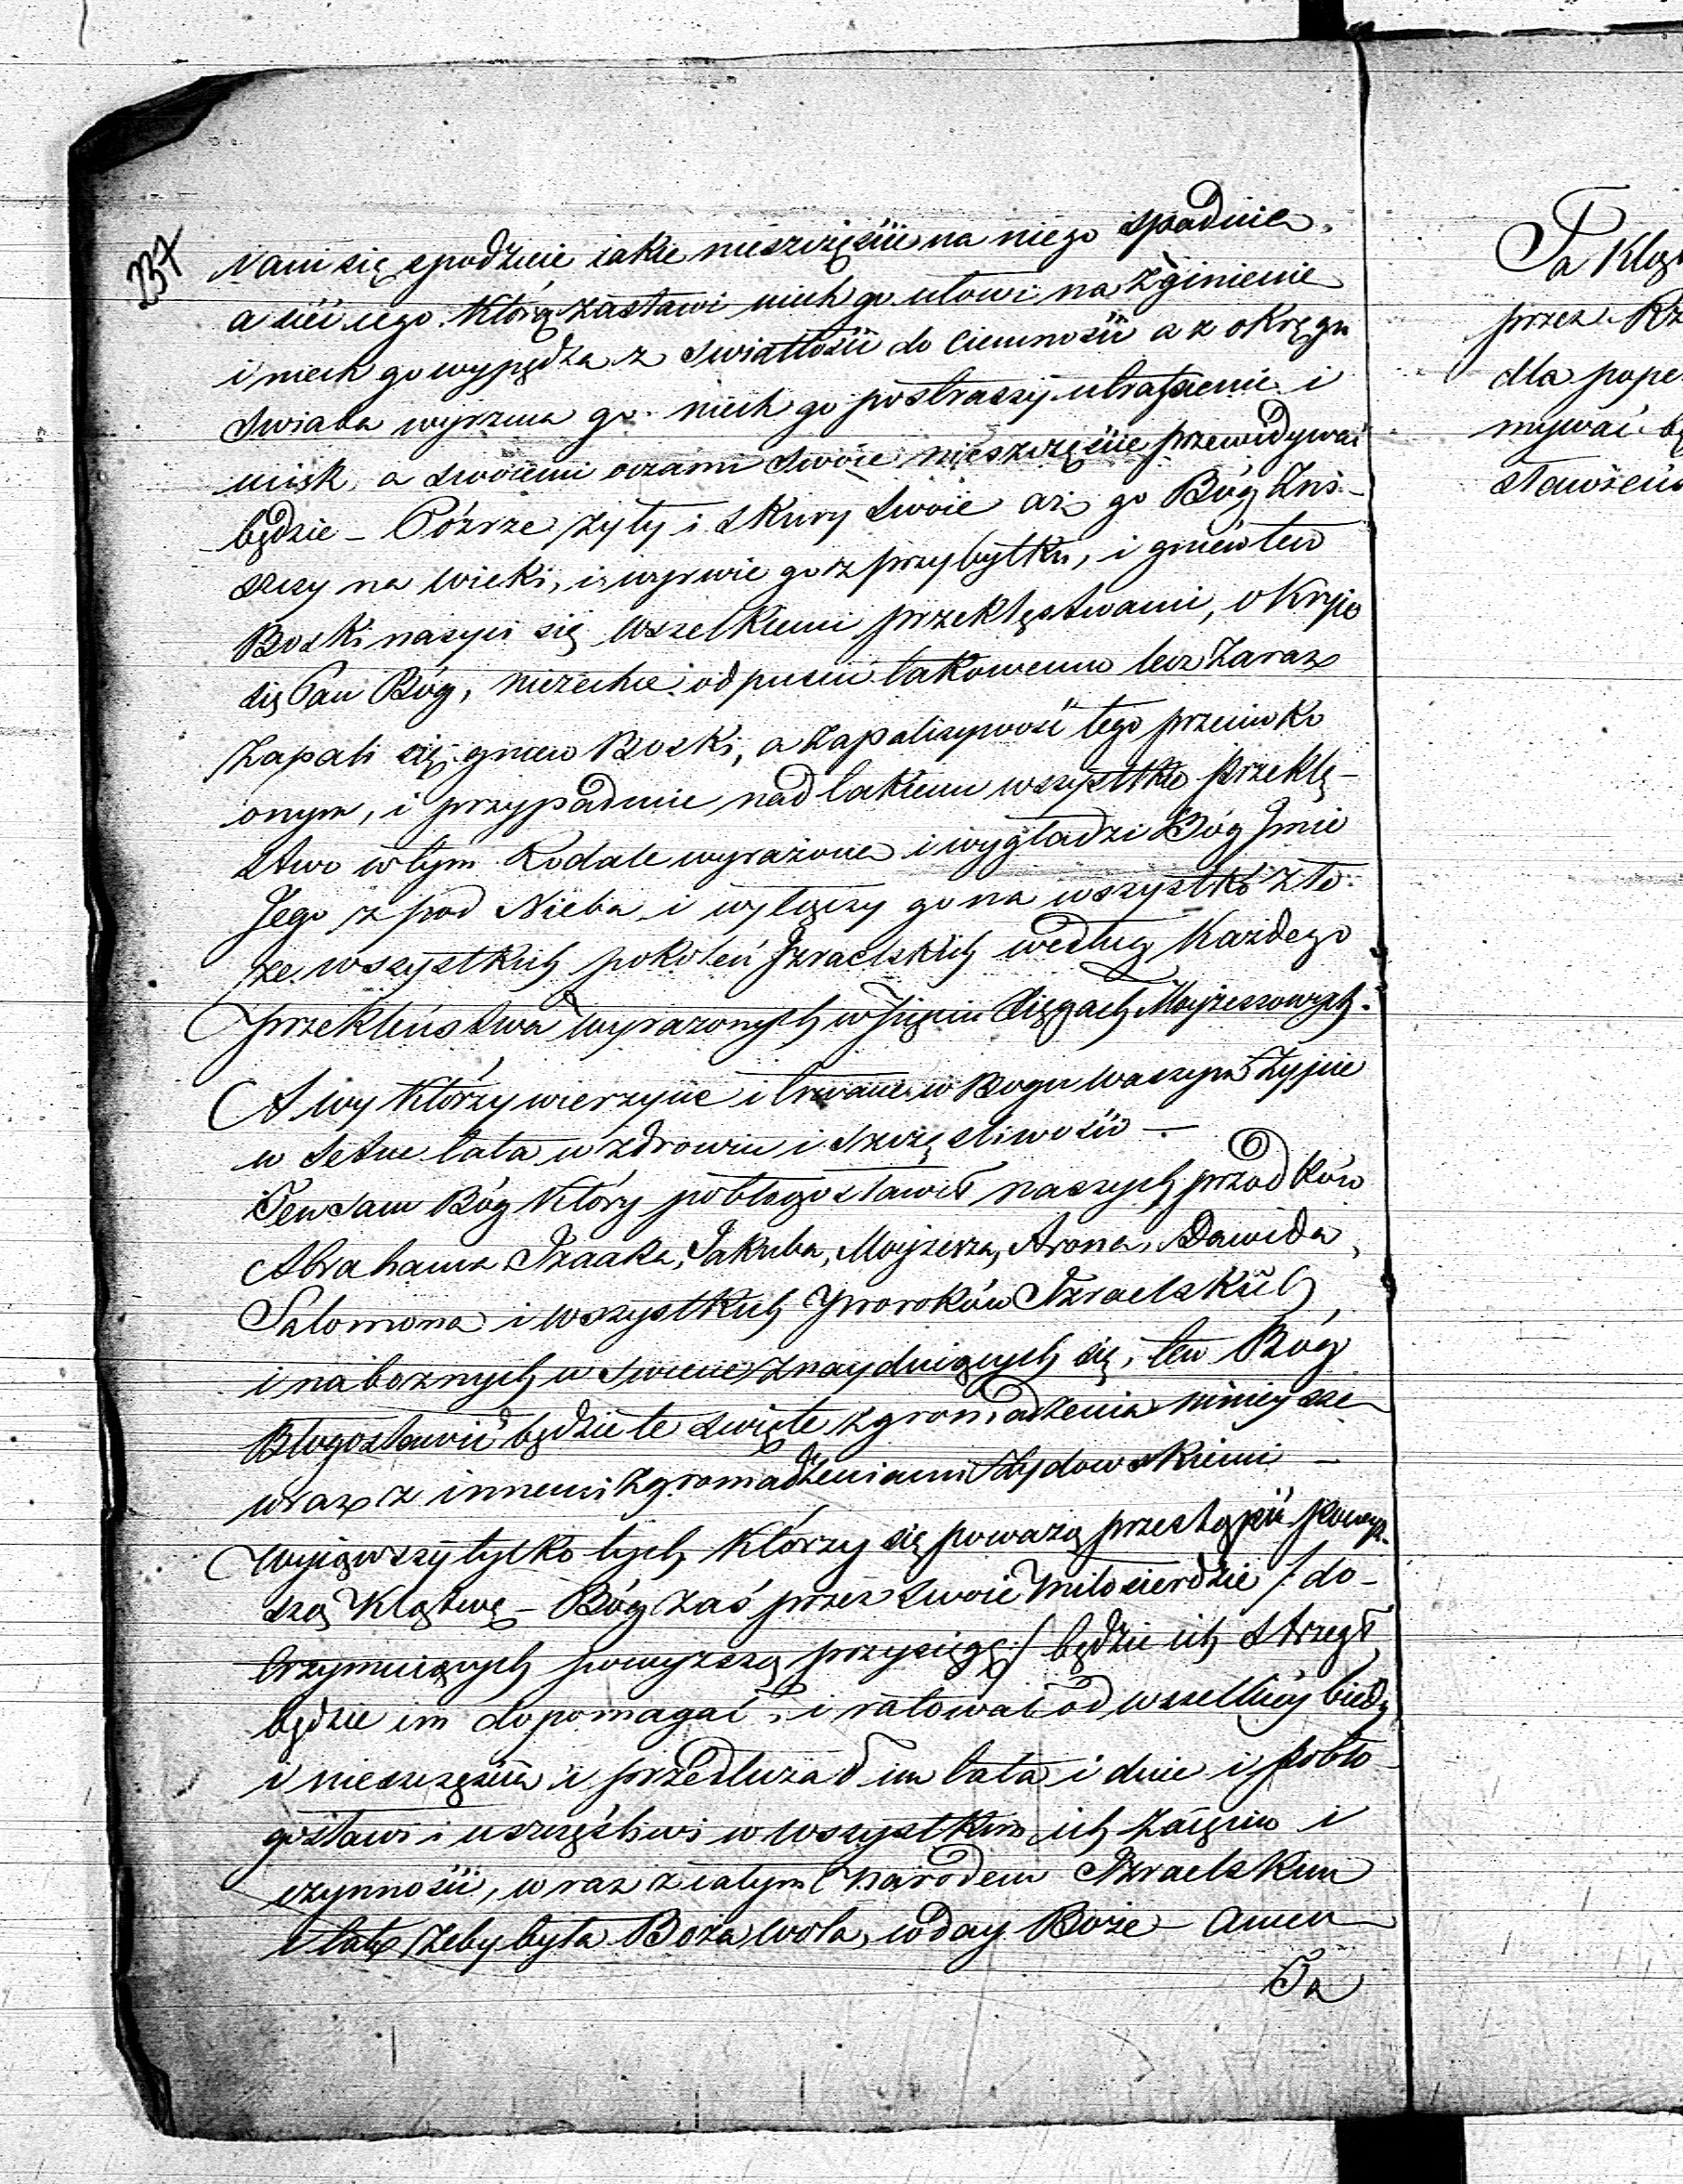 237
Nani się spodzieie iakie nieszczęście na niego spadnie,
a sieć iego którą zastawi niech go ułowi na zginienie
i niech go wypędza z swiatłości do ciemności a z okręgu
swiata wyrzuca go. niech go postraszy utrapienie i
ucisk, a swoiemi oczami swoie nieszczęście przewidywać
będzie – Pożrze żyły i skury swoie aż go Bóg zni-
szczy na wieki, i wyrwie go z przybytku, i gniew ten
Boski nasyci się wszelkiemi przeklęstwami, okryie
się Pan Bóg, niezechce odpuścić takowemu lecz zaraz
zapali się gniew Boski, a zapalczywość tego przeciwko
onym, i przypadnie nad takiem wszystkie przeklę-
stwo w tym Rodale wyrażone i wygładzi Bóg Jmie
Jego z pod Nieba i wyłączy go na wszystko złe
ze wszystkich pokoleń Jzraelskich według każdego
przeklęństwa wyrażonych w pięciu Xięgach Moyżeszowych.
A wy którzy wierzycie i trwacie w Bogu waszym żyjcie
w setne lata w zdrowiu i szczęsliwości –
Ten sam Bóg który pobłogosławił naszych przodków
Abrahama Izaaka, Jakuba, Moyzesza, Arona, Dawida,
Salomona i wszystkich Proroków Izraelskich
i nabożnych w swiecie znayduiących się, ten Bóg
Błogosławić będzie te swięte zgromadzenia nineysze
wraz z innemi zgromadzeniami żydowskiemi –
wyiąwszy tylko tych którzy się poważą przestąpić powyż-
szą Klątwę – Bóg zaś przez swoie Miłosierdzie /: do-
trzymuiących powyższą przysięgę :/ będzie ich strzegł
będzie im dopomagać, i ratować od wszelkiéy biedy
i nieszczęścia i przedłuzał im lata i dnie i pobło-
gosławi i uszczęśliwi w wszystkim ich zaięciu i
czynności, wraz z całym narodem Izraelskim
i tak żeby była Boża wola, coday Boże – Amen
Ta
Ta Klą
przez Rz
dla pope
mywać bę
stawień